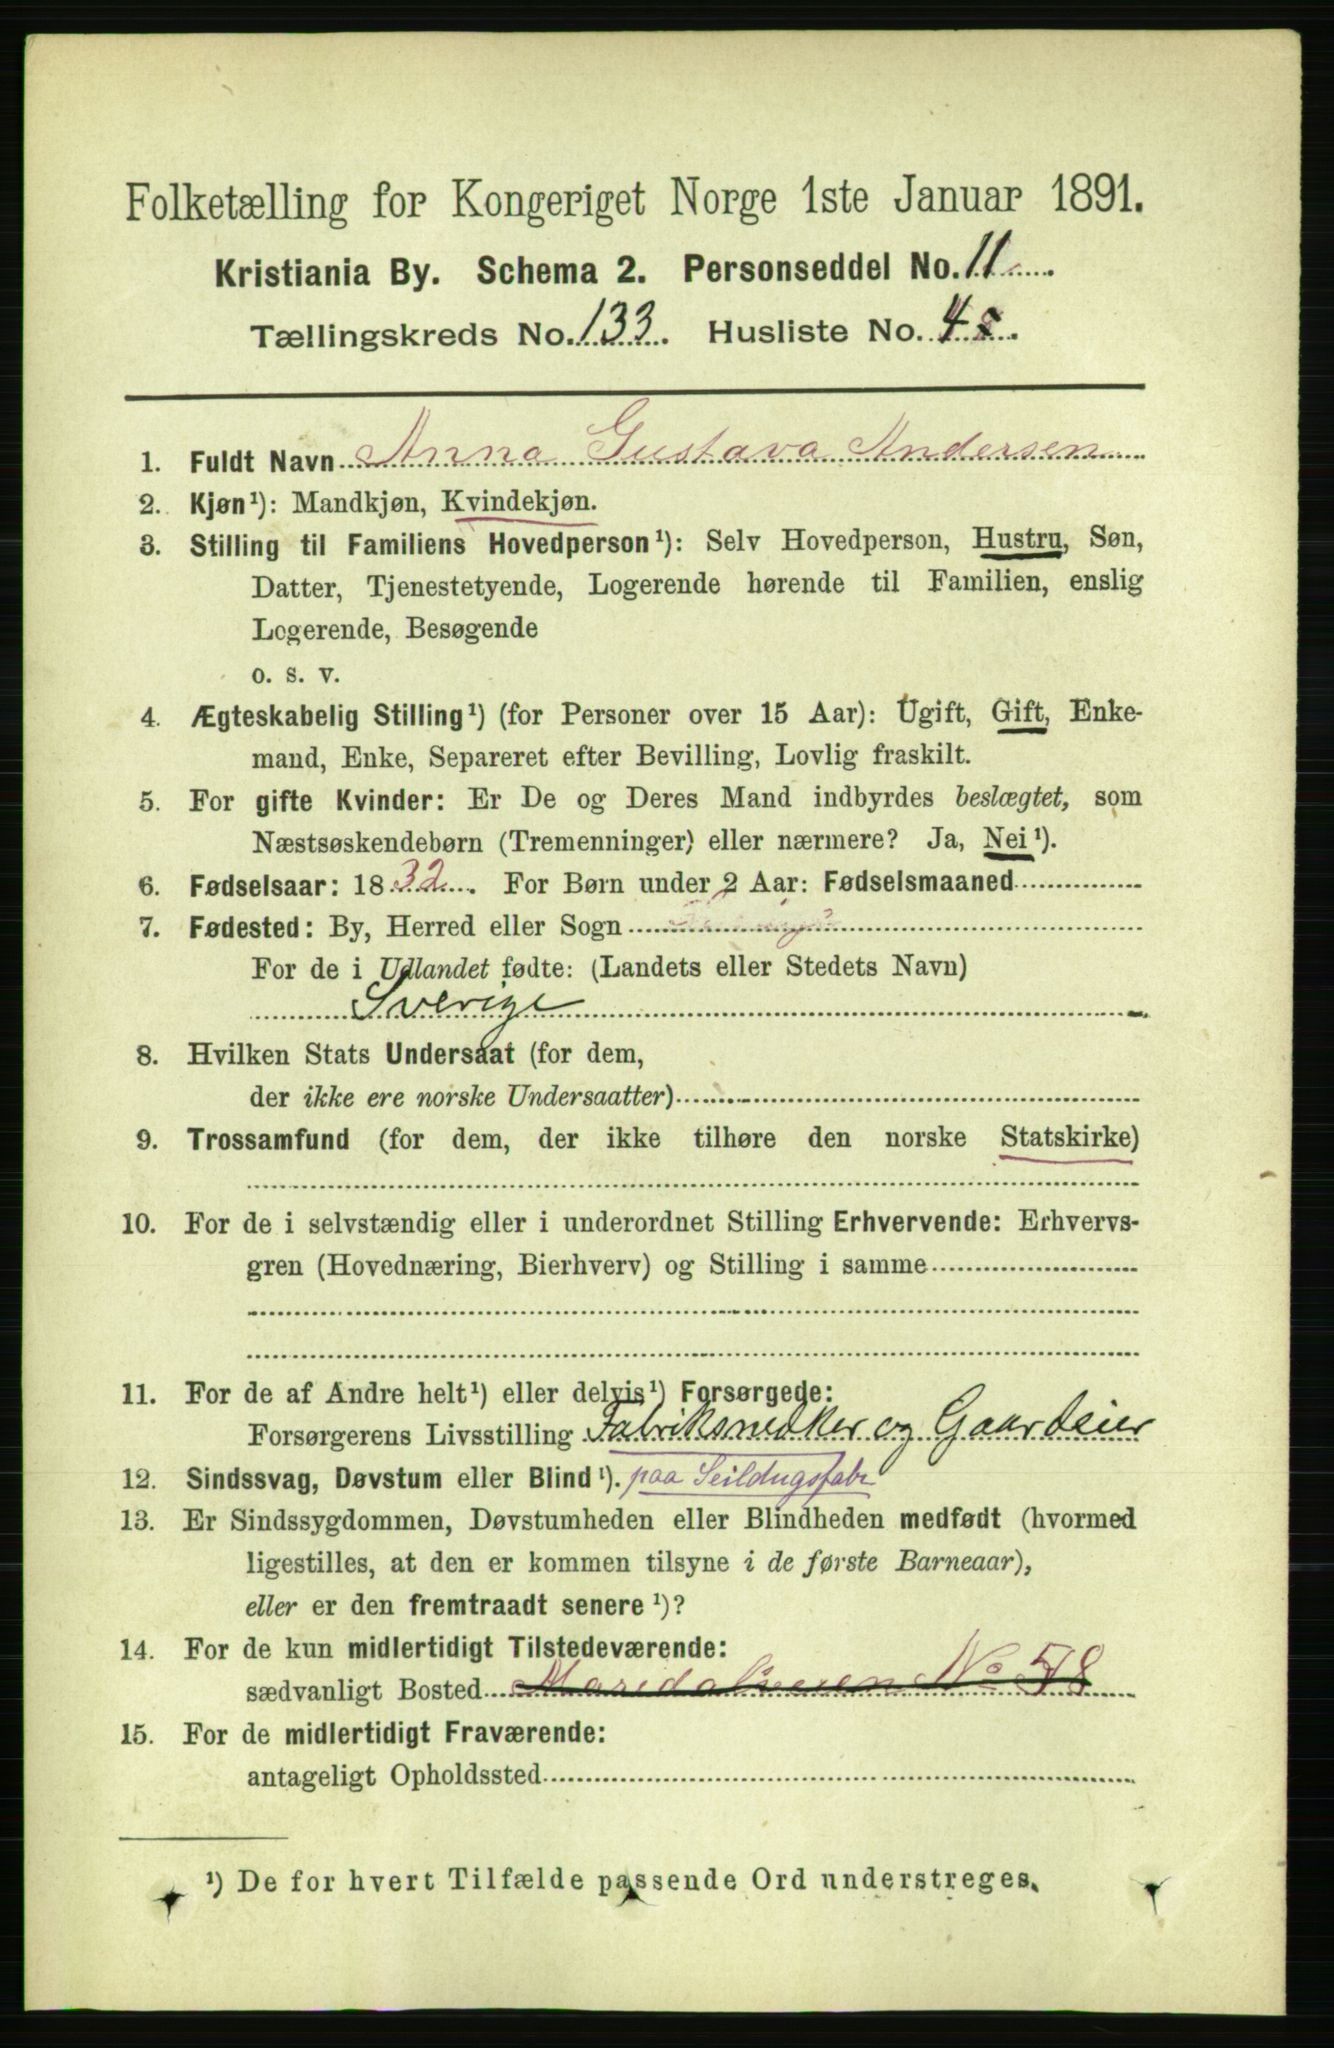 Folketælling for Kongeriget Norge 1ste Januar 1891.
Kristiania By. Schema 2. Personseddel No. 11
Tællingskreds No. 133. Husliste No. 4
1. Fuldt Navn Anna Gustava Andersen
2. Kjøn¹): Mandkjøn, Kvindekjøn.
3. Stilling til Familiens Hovedperson¹): Selv Hovedperson, Hustru, Søn,
Datter, Tjenestetyende, Logerende hørende til Familien, enslig
Logerende, Besøgende
o. s. v.
4. Ægteskabelig Stilling¹) (for Personer over 15 Aar): Ugift, Gift, Enke-
mand, Enke, Separeret efter Bevilling, Lovlig fraskilt.
5. For gifte Kvinder: Er De og Deres Mand indbyrdes beslægtet, som
Næstsøskendebørn (Tremenninger) eller nærmere? Ja, Nei¹).
6. Fødselsaar: 1832. For Børn under 2 Aar: Fødselsmaaned
7. Fødested: By, Herred eller Sogn
For de i Udlandet fødte: (Landets eller Stedets Navn)
Sverige
8. Hvilken Stats Undersaat (for dem,
der ikke ere norske Undersaatter)
9. Trossamfund (for dem, der ikke tilhøre den norske Statskirke)
10. For de i selvstændig eller i underordnet Stilling Erhvervende: Erhvervs-
gren (Hovednæring, Bierhverv) og Stilling i samme
11. For de af Andre helt¹) eller delvis¹) Forsørgede:
Forsørgerens Livsstilling Fabriksnedker og Gaardeier
12. Sindssvag, Døvstum eller Blind¹). paa Seildugsfabr
13. Er Sindssygdommen, Døvstumheden eller Blindheden medfødt (hvormed
ligestilles, at den er kommen tilsyne i de første Barneaar),
eller er den fremtraadt senere¹)?
14. For de kun midlertidigt Tilstedeværende:
sædvanligt Bosted Maridalsveien No 78
15. For de midlertidigt Fraværende:
antageligt Opholdssted
¹) De for hvert Tilfælde passende Ord understreges.